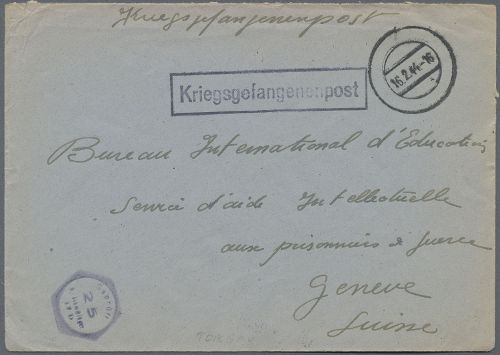 Kriegsgefangenenpost
Kriegsgefangenenpost
16.2.44-16
Bureau International d'Education
Service d'aide Intellectuelle
aux prisonniers de guerre
Genève
Suisse
25